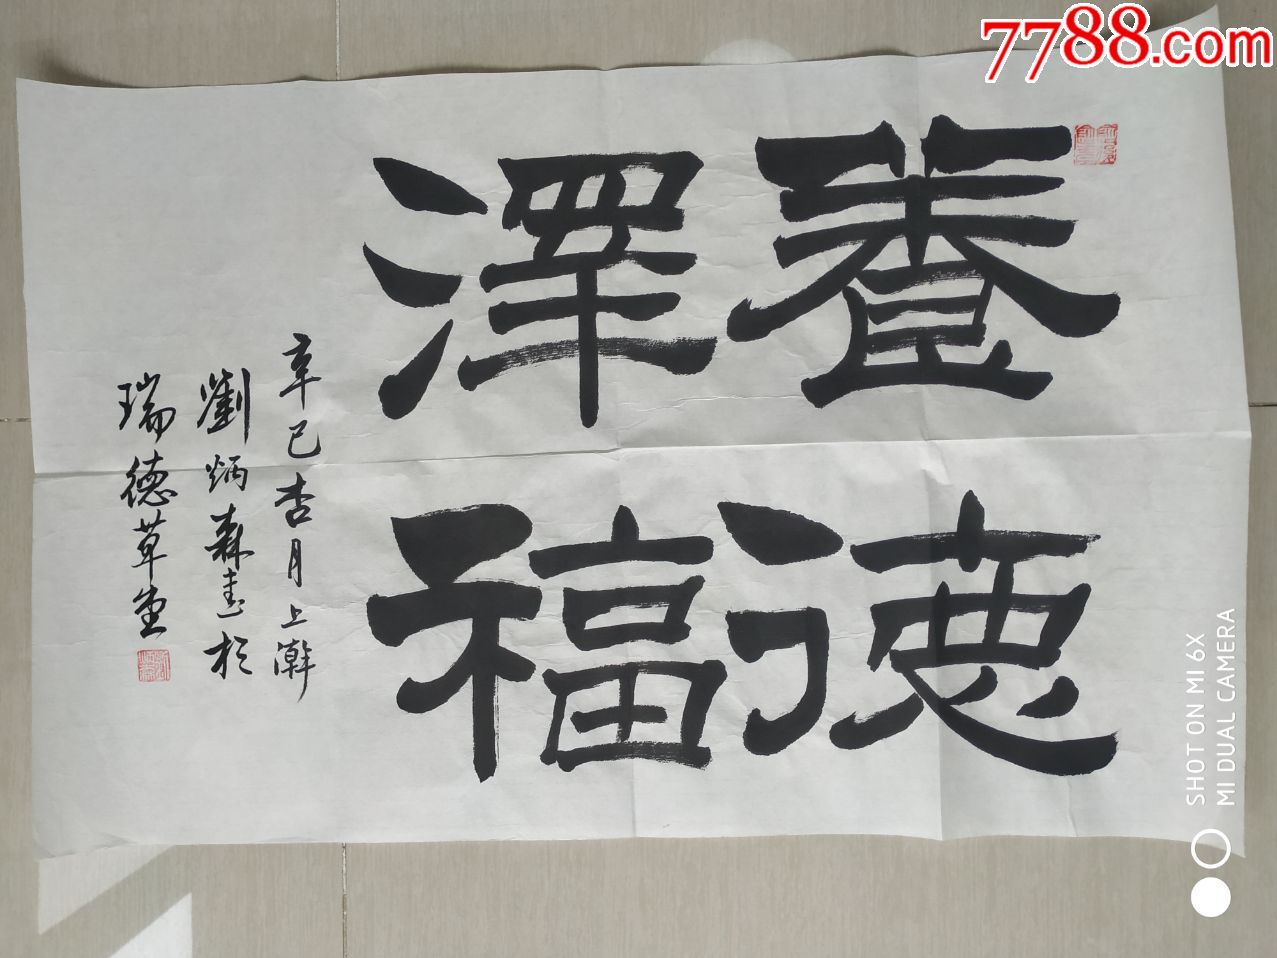 養德
澤福
辛巳杏月上澣
劉炳森書於
瑞德草堂
7788.com
SHOT ON MI 6X
MI DUAL CAMERA